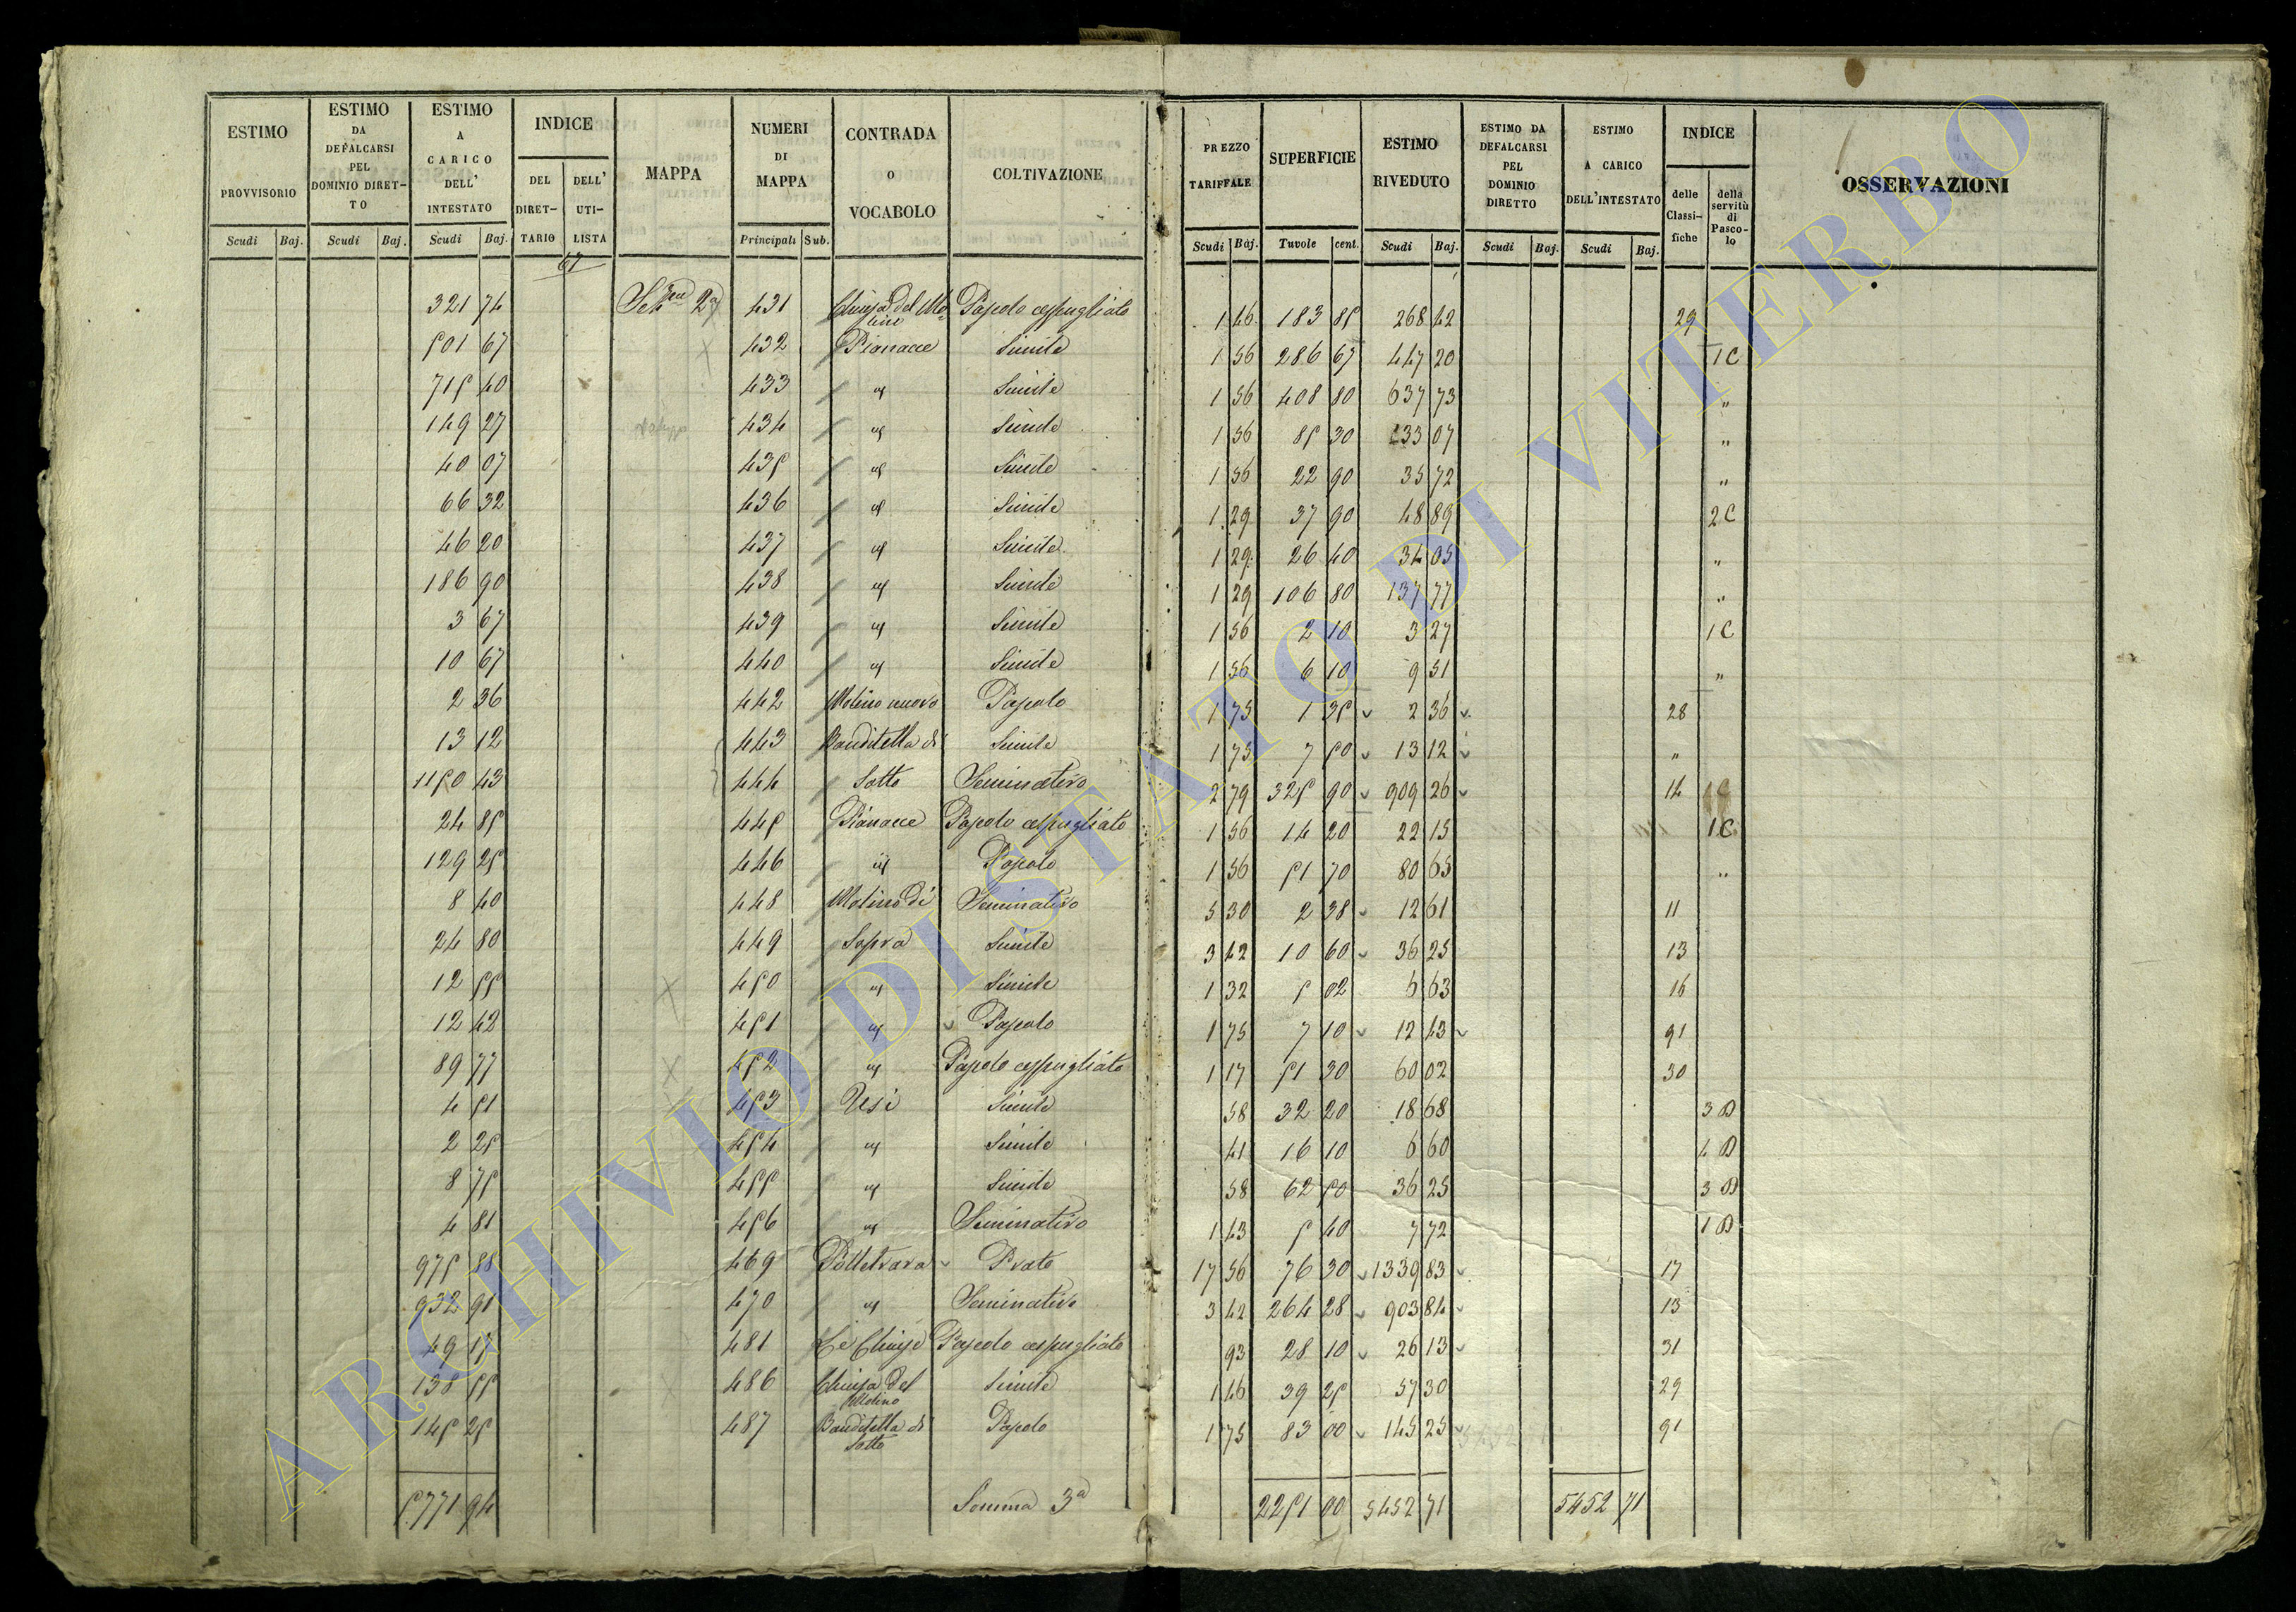 ESTIMO PROVVISORIO Scudi Baj.
ESTIMO DA DEFALCARSI PEL DOMINIO DIRET- TO Scudi Baj.
ESTIMO A CARICO DELL' INTESTATO Scudi Baj.
INDICE DEL DIRET- TARIO DELL' UTI- LISTA
MAPPA
NUMERI DI MAPPA Principali Sub.
CONTRADA O VOCABOLO
COLTIVAZIONE
PREZZO TARIFFALE Scudi Baj.
SUPERFICIE Tavole cent.
ESTIMO RIVEDUTO Scudi Baj.
ESTIMO DA DEFALCARSI PEL DOMINIO DIRETTO Scudi Baj.
ESTIMO A CARICO DELL'INTESTATO Scudi Baj.
INDICE delle Classi- fiche della servitù di Pasco- lo
OSSERVAZIONI
67
321 74 431 Chiusa del Mo- lino Pascolo cespugliato 1 46 183 85 268 42 29
501 67 432 Pianacce Simile 1 56 286 67 447 20 1C
715 40 433 " Simile 1 56 408 80 637 73 "
149 27 434 " Simile 1 56 85 30 133 07 "
40 07 435 " Simile 1 56 22 90 35 72 "
66 32 436 " Simile 1 29 37 90 48 89 2C
46 20 437 " Simile 1 29 26 40 34 05 "
186 90 438 " Simile 1 29 106 80 137 77 "
3 67 439 " Simile 1 56 2 10 3 27 1C
10 67 440 " Simile 1 56 6 10 9 51 "
2 36 442 Molino nuovo Pascolo 1 75 1 35 2 36 28
13 12 443 Banditella di Simile 1 75 7 50 13 12 "
1150 43 444 Sotto Seminativo 2 79 325 90 909 26 14 1C
24 85 445 Pianacce Pascolo cespugliato 1 56 14 20 22 15 1C
129 25 446 " Pascolo 1 56 51 70 80 65 "
8 40 448 Molino di Seminativo 5 30 2 38 12 61 11
24 80 449 Sopra Simile 3 42 10 60 36 25 13
12 55 450 " Simile 1 32 5 02 6 63 16
12 42 451 " Pascolo 1 75 7 10 12 43 91
89 77 452 " Pascolo cespugliato 1 17 51 30 60 02 30
4 51 453 Simile 58 32 20 18 68 3 D
2 25 454 " Simile 41 16 10 6 60 4 D
8 75 455 " Simile 58 62 50 36 25 3 D
4 81 456 " Seminativo 1 43 5 40 7 72 1 D
975 88 469 Prato 17 56 76 30 1339 83 17
932 91 470 " Seminativo 3 42 264 28 903 84 13
49 17 481 Le Chiuse Pascolo cespugliato 93 28 10 26 13 31
138 55 486 Chiusa del Molino Simile 1 46 39 25 57 30 29
145 25 487 Banditella di Sotto Pascolo 1 75 83 00 145 25 91
5771 94 Somma 3a 2251 00 5452 71 5452 71
ARCHIVIO DI STATO DI VITERBO